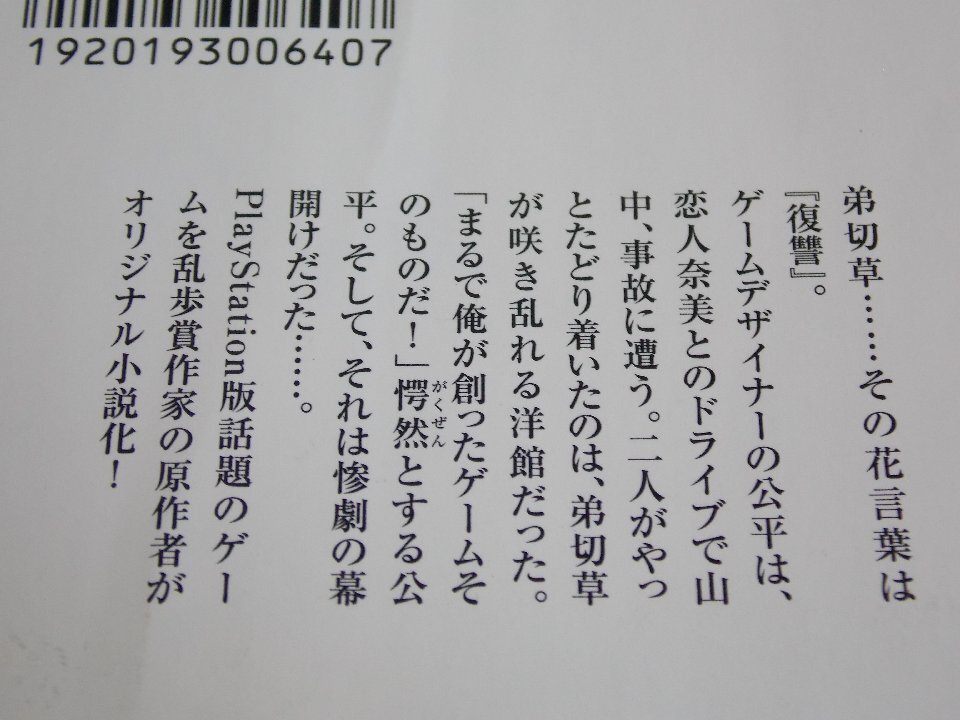 1920193006407
弟切草……その花言葉は
『復讐』。
ゲームデザイナーの公平は、
恋人奈美とのドライブで山
中、事故に遭う。二人がやっ
とたどり着いたのは、弟切草
が咲き乱れる洋館だった。
「まるで俺が創ったゲームそ
のものだ！」愕然とする公
がくぜん
平。そして、それは惨劇の幕
開けだった……。
PlayStation版話題のゲー
ムを乱歩賞作家の原作者が
オリジナル小説化！